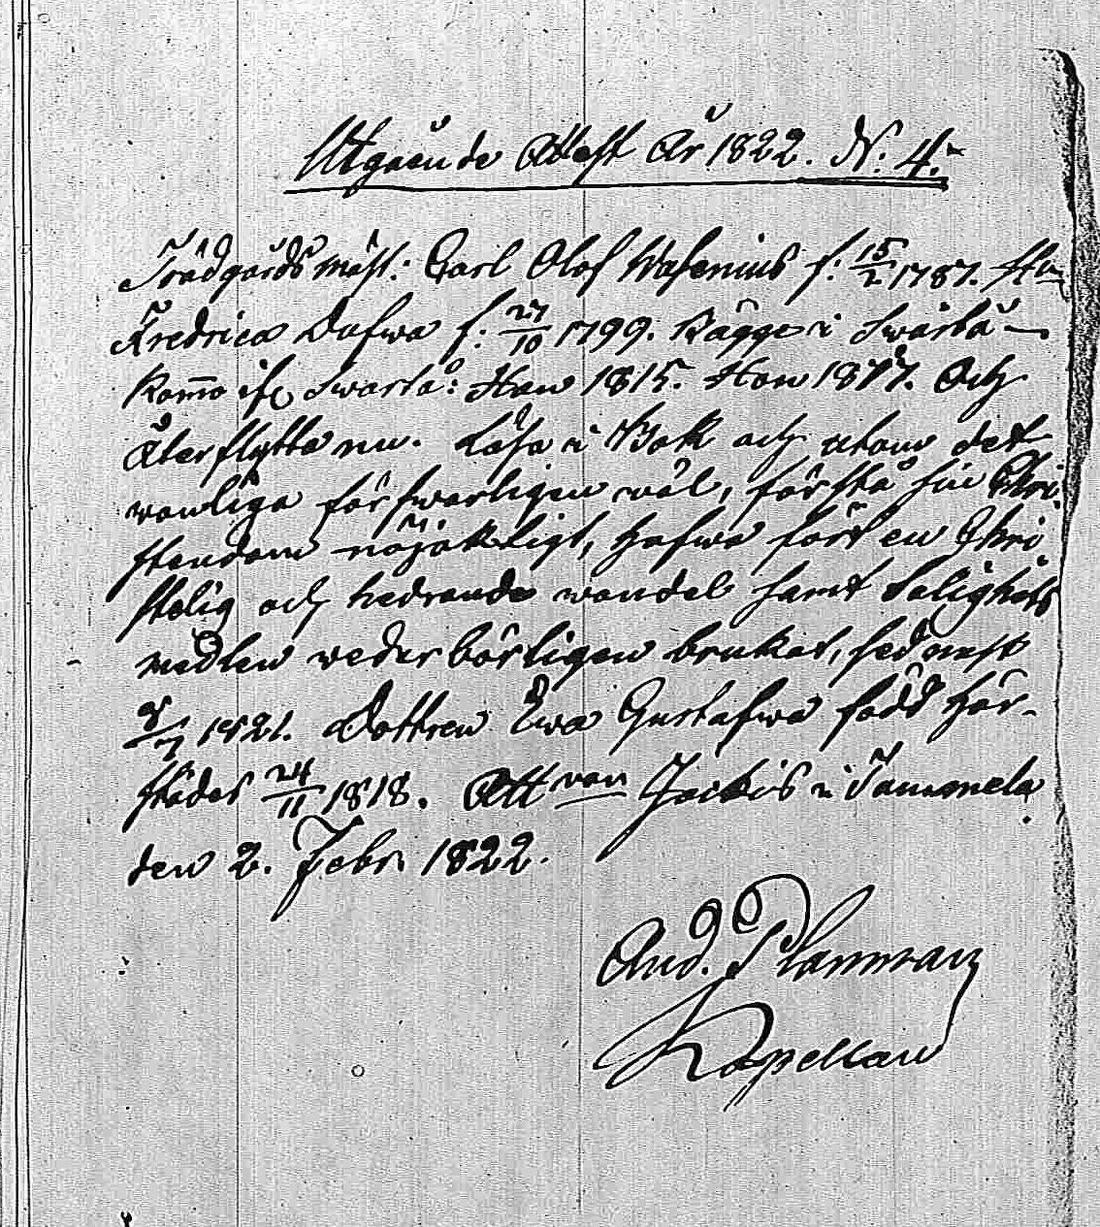 Utgående Attest År 1822. N: 4.
Trädgårds mäst: Carl Olof Wasenius f: 15/2 1787. Hu
Fredrica Dafwa f: 27/10 1799. Bägge i Swartå
Kommo ifr Swartå: Han 1815. Hon 1817. Och
återflytta nu. Läsa i Bok och utom det
wanliga förswarligen wäl, förstå sin Chri
stendom nöjaktligt, hafwa fört en Chri
stelig och hedrande wandel samt Salighets
medlen wederbörligen brukat, sednast
1821. Dottren Ewa Gustafwa född här-
städes 24/11 1818. Att van Jockis i Tammela
den 2. Febr. 1822.
And. Planman
Kapellan